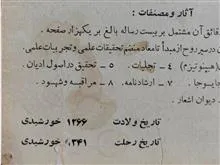 آثار و مصنفات :
دقائق آن مشتمل بر بیست رساله بالغ بر یکهزار صفحه .
در سیر روح از مبدأ تا معاد منضم تحقیقات علمی و تجربیات عملی .
(هیپنوتیزم) ۴ – تجلیات . ۵ – تحقیق در اصول ادیان .
۷ – ارشادنامه . ۸ – مراقبه و شهود .
دیوان اشعار .
تاریخ ولادت خورشیدی
تاریخ رحلت خورشیدی